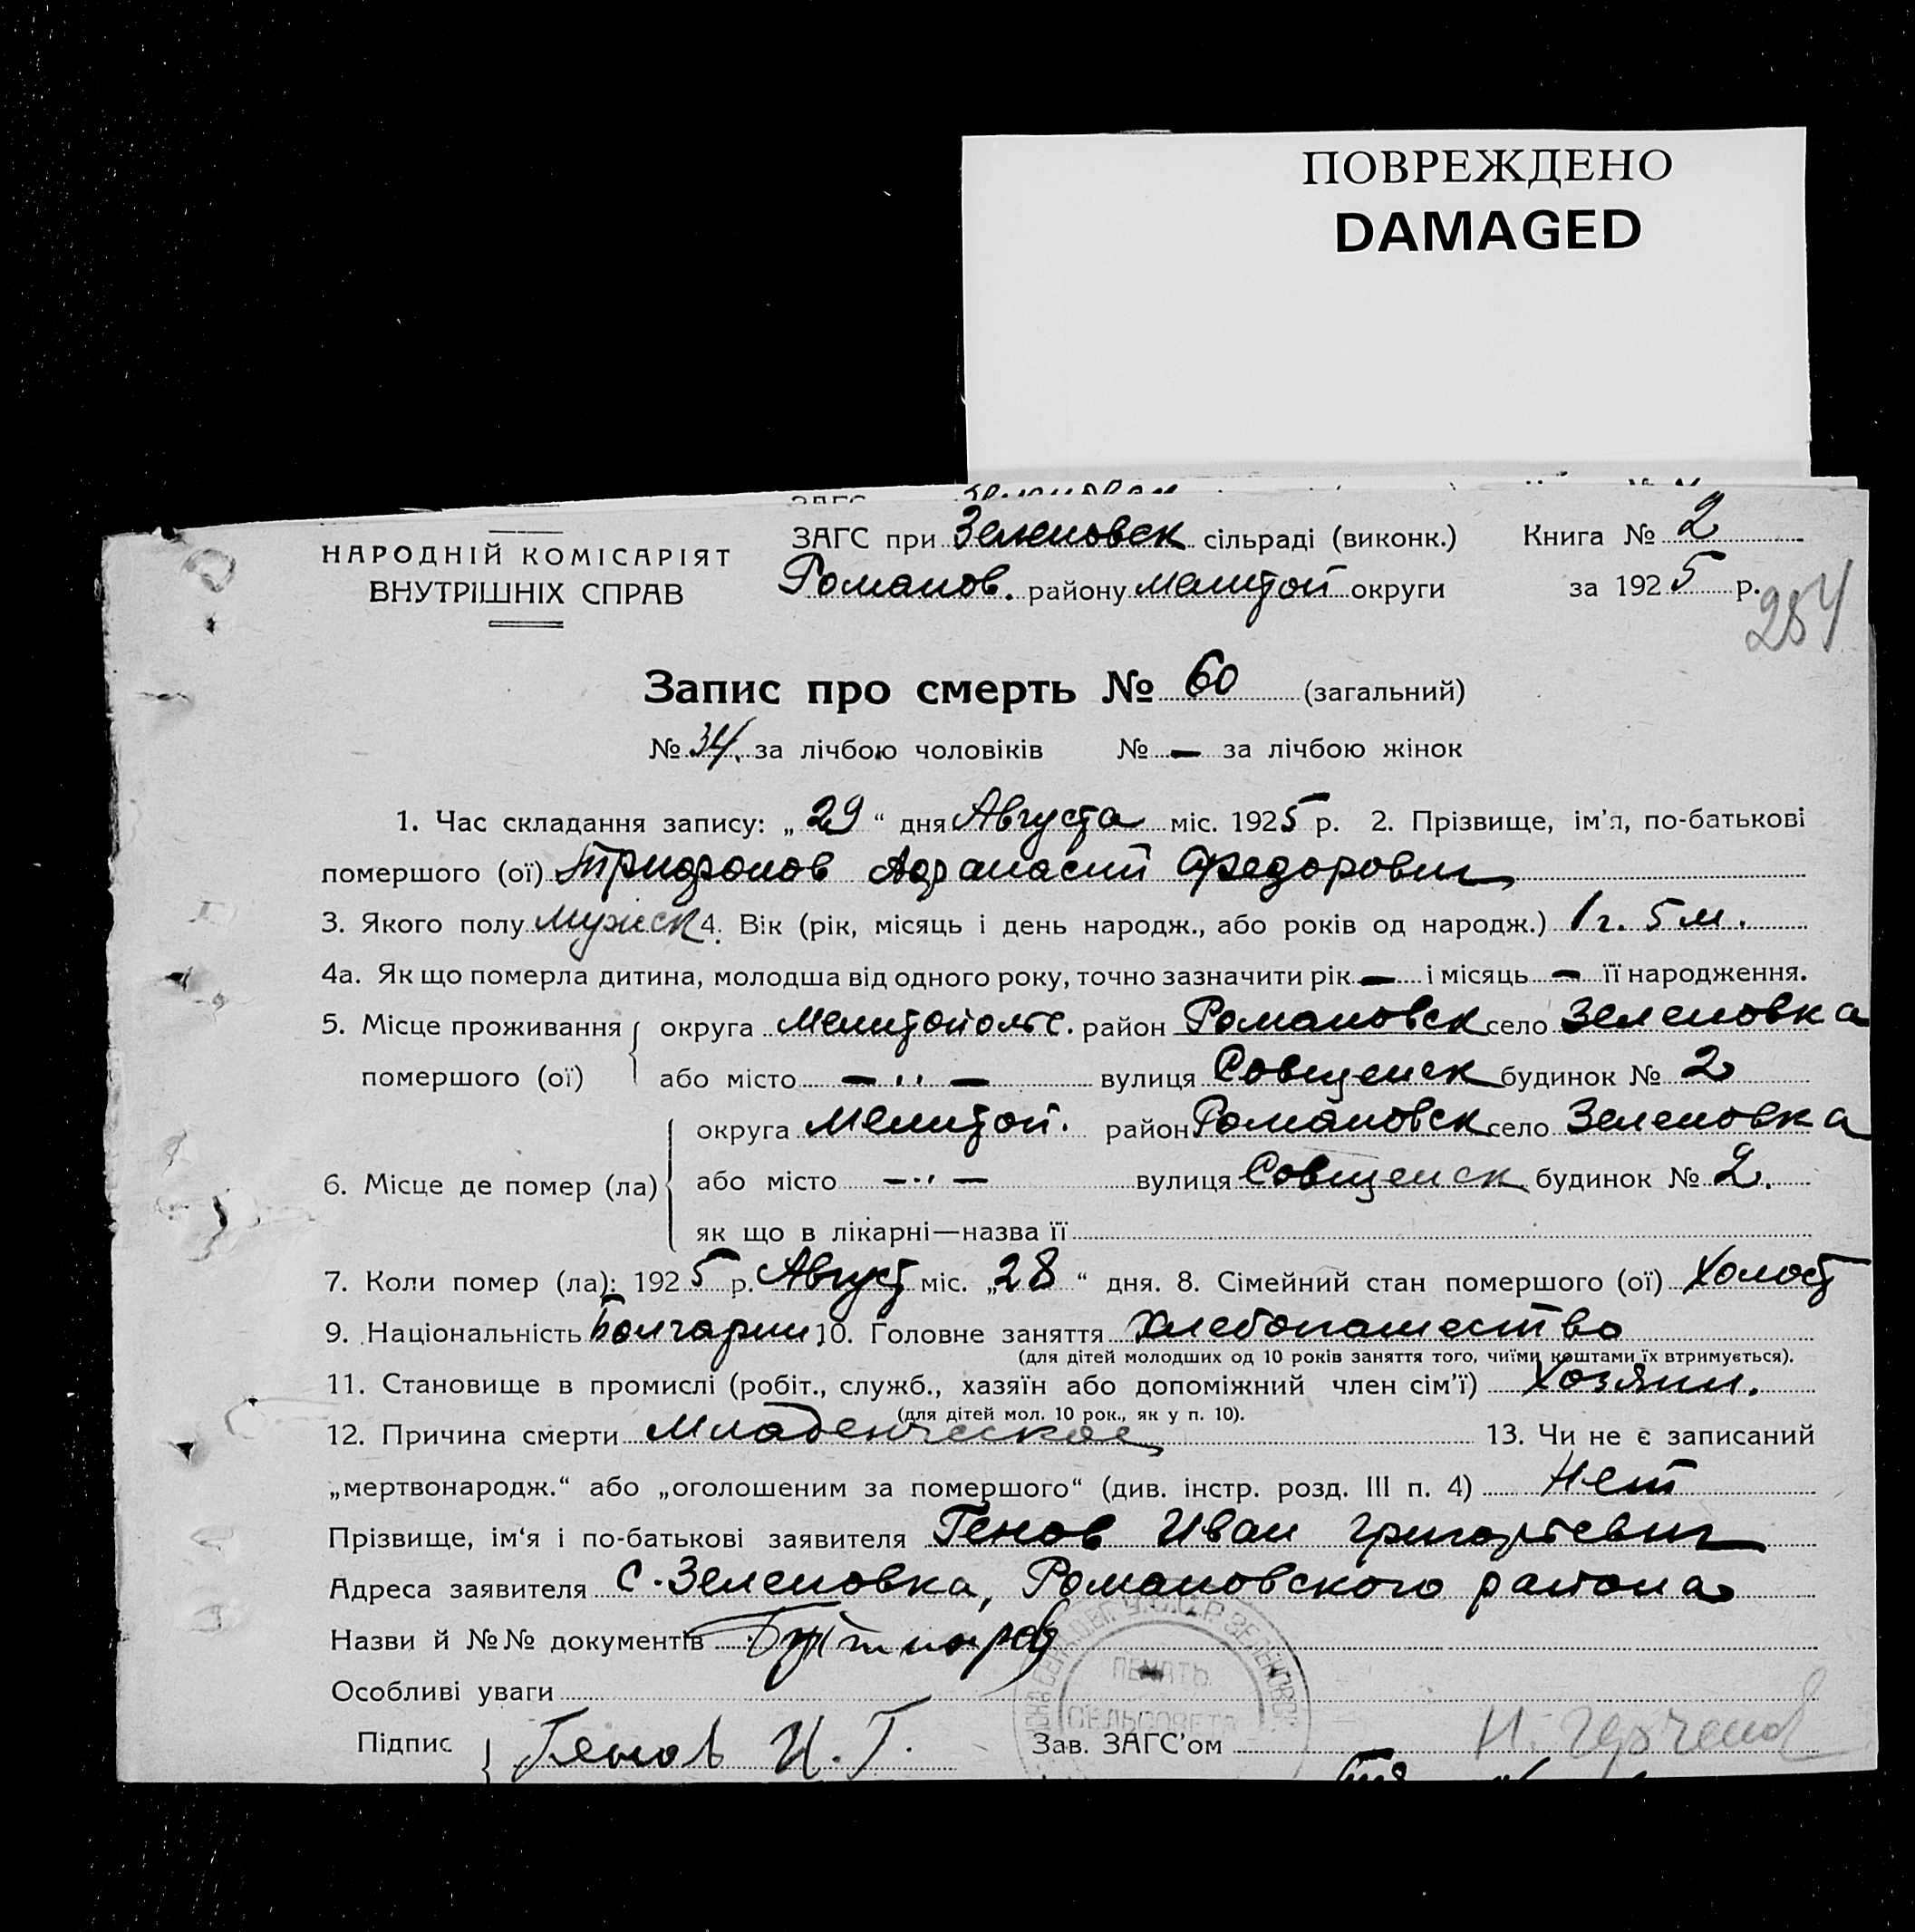 ПОВРЕЖДЕНО
DAMAGED
НАРОДНІЙ КОМІСАРІЯТ
ВНУТРІШНІХ СПРАВ
ЗАГС при Зеленовск сільраді (виконк.) Книга № 2
Романов. району Мелитоп округи за 1925 р.
284
Запис про смерть № 60 (загальний)
№ 34. за лічбою чоловіків № — за лічбою жінок
1. Час складання запису: „29“ дня Августа міс. 1925 р. 2. Прізвище, ім'я, по-батькові
помершого (ої) Трифонов Афанасий Федорович
3. Якого полу мужск 4. Вік (рік, місяць і день народж., або років од народж.) 1 г. 5 м.
4а. Як що померла дитина, молодша від одного року, точно зазначити рік — і місяць — її народження.
5. Місце проживання округа Мелитопольс. район Романовск село Зеленовка
помершого (ої) або місто — ,, — вулиця будинок № 2
округа Мелитоп. район Романовск село Зеленовка
6. Місце де помер (ла) або місто — ,, — вулиця будинок № 2.
як що в лікарні—назва її
7. Коли помер (ла): 1925 р. Август міс. „28“ дня. 8. Сімейний стан помершого (ої) Холост
9. Національність Болгарин 10. Головне заняття Хлебопашество
(для дітей молодших од 10 років заняття того, чиїми коштами їх втримується).
11. Становище в промислі (робіт., служб., хазяїн або допоміжний член сім'ї) Хозяин.
(для дітей мол. 10 рок., як у п. 10).
12. Причина смерти Младенческое 13. Чи не є записаний
„мертвонародж.“ або „оголошеним за помершого“ (див. інстр. розд. III п. 4) Нет
Прізвище, ім'я і по-батькові заявителя Генов Иван Григорьевич
Адреса заявителя С. Зеленовка, Романовского района
Назви й №№ документів
Особливі уваги
ПЕЧАТЬ
СЕЛЬСОВЕТА
Підпис Генов И. Г. Зав. ЗАГС'ом